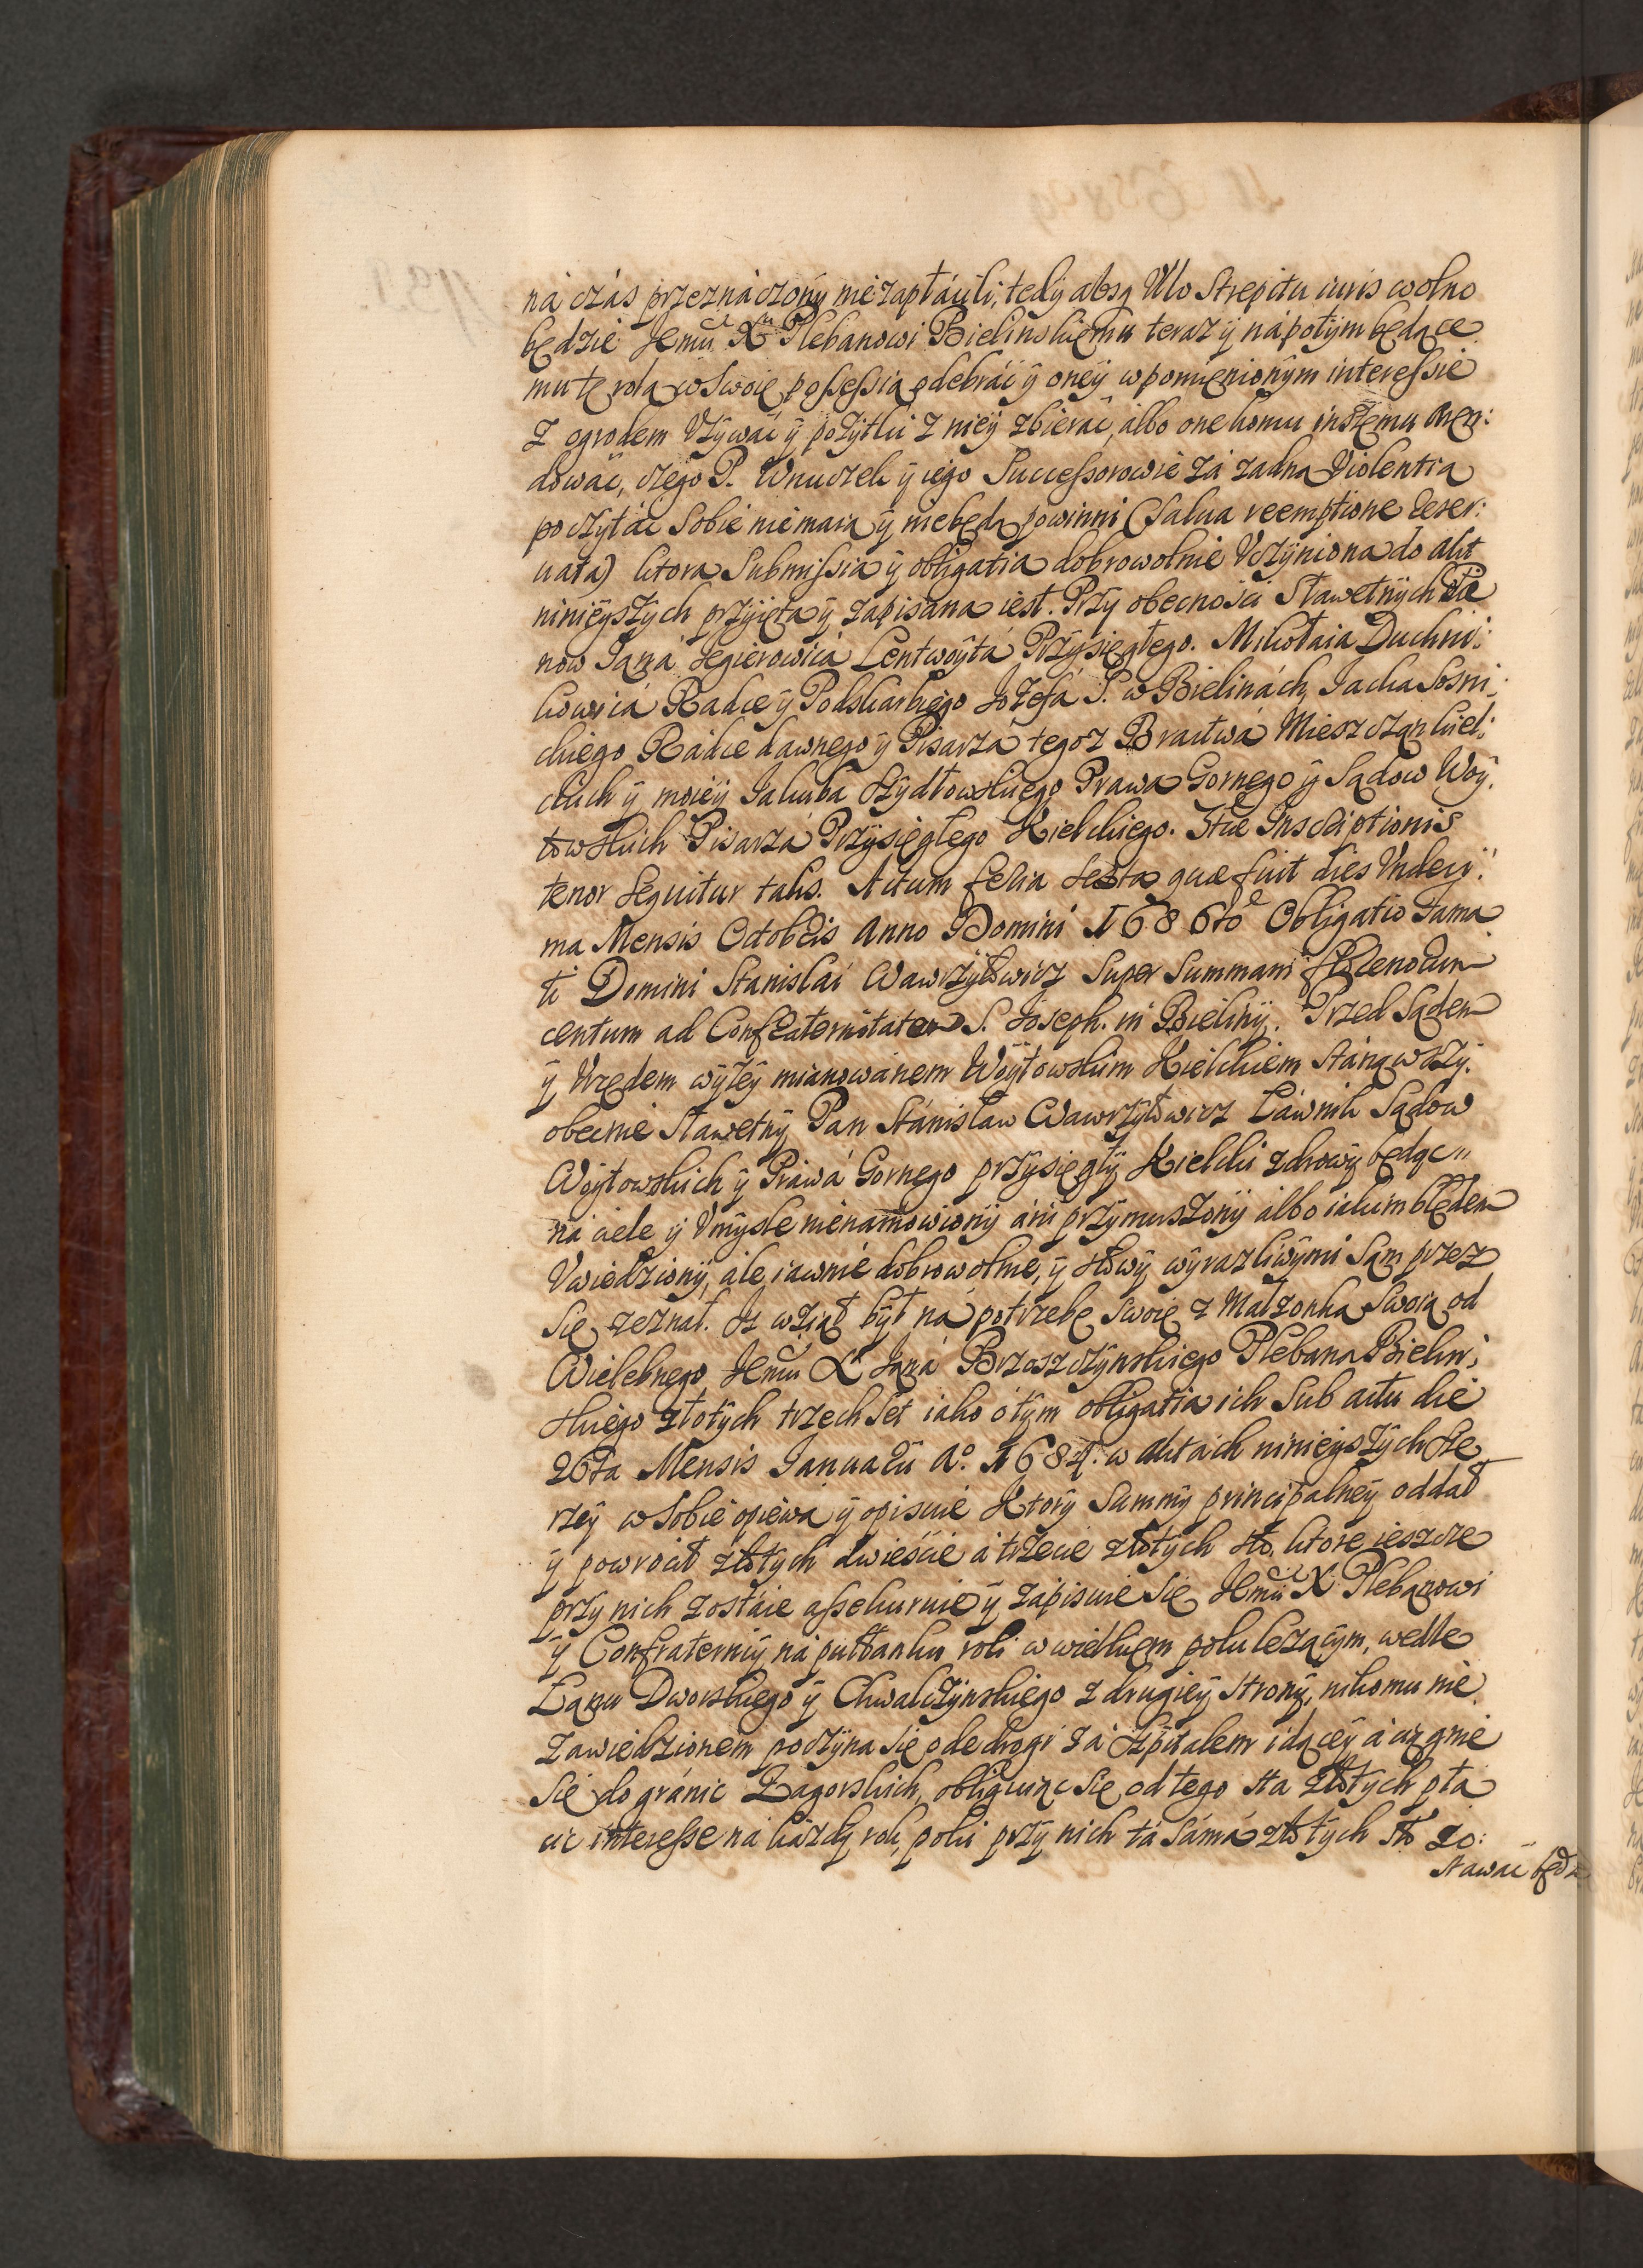 ná czás przeznáczony niezapłácili, tedy absq Ullo Strepitu iuris wolno
będzie Jemu Xu Plebanowi Bielinskiemu teraz ÿ nápotÿm będące
mu tę rola w Swoię possessia odebráć ÿ oneÿ wpomienionÿm interessie
z ogrodem Vżÿwáć ÿ pożÿtki z nieÿ zbieráć, álbo one komu inszemu Aren:
dowáć, czego P. Wnuczek ÿ iego Successorowie zá zadna Violentia
poczÿtáć Sobie niemaia ÿ niebęda powinni (Salua reemptione reser:
uata) ktora Submissia ÿ obligatia dobrowolnie Vczÿniona do akt
ninieÿszÿch przÿięta ÿ zapisana iest. Przÿ obecnosći Sławetnÿch Pa
now Janá Jegierowicá Lentwoÿtá Przÿsięgłego. Mikołaia Duchni:
kowicá Radce ÿ Podskarbiego Jozefá S. w Bielinách, Jacka Sosni:
ckiego Rádce dawnego ÿ Pisarzá tegoz Bractwá Mieszcząn kiel:
ckich ÿ moieÿ Jakuba Szÿdłowskiego Prawa Gornego ÿ Sądow Woÿ:
towskich Pisarzá Przÿsięgłego Kielckiego. Itte Inscriptionis
tenor Seguitur talis. Actum feria Sexta quæ fuit dies Vndeci:
ma Mensis Octobris Anno Domini 1686to Obligatio Fama
ti Domini Stanislai Wawrzÿkowicz Super Summam florenorum
centum ad Confraternitatem S. Joseph. in Bielinÿ. Przed Sądem
ÿ Vrzędem wÿżeÿ mianowánem Woÿtowskim Kielckiem Stánąwszÿ
obecnie Sławetnÿ Pan Stánisław Wawrzÿkowicz Łáwnik Sądow
Woÿtowskich ÿ Práwá Gornego przÿsięgłÿ Kielcki zdrowÿ będąc
ná ciele ÿ Vmÿsle nienamowionÿ áni przÿmuszonÿ álbo iakim błędem
Vwiedzionÿ, ále iawnie dobrowolnie, ÿ słowÿ wÿrazliwÿmi Sam przez
Się zeznał. Jz wziął bÿł ná potrzebę Swoię z Małzonka Swoią od
Wielebnego Jemu X Janá Brzoszczÿnskiego Plebana Bielin:
skiego złotÿch trzech Set iako o tÿm obligatia ich Sub actu die
26ta Mensis Januarii Ao. 1684. w aktach ninieÿszÿch Sze
rzeÿ w Sobie opiewá ÿ opisuie Ktorÿ Summÿ principalneÿ oddał
ÿ powroćił złotÿch dwieśćie á trzecie złotÿch sto, ktore ieszcze
przy nich zostaie assekuruie ÿ zápisuie Się Jemu X Plebanowi
ÿ Confraterniÿ ná pułłanku roli w wielkiem polu leżącÿm, wedle
Łanu Dworskiego ÿ Chwalczÿnskiego z drugieÿ stronÿ, nikomu nie
zawiedzionem poczÿna Się ode drogi zá Szpitalem idąceÿ á ciągnie
Się do gránic Zagorskich, obliguiąc Się od tego sta złotÿch pła
cić interesse ná każdÿ rok, poki przÿ nich tá Sámá złotÿch sto zo:
stawać będz